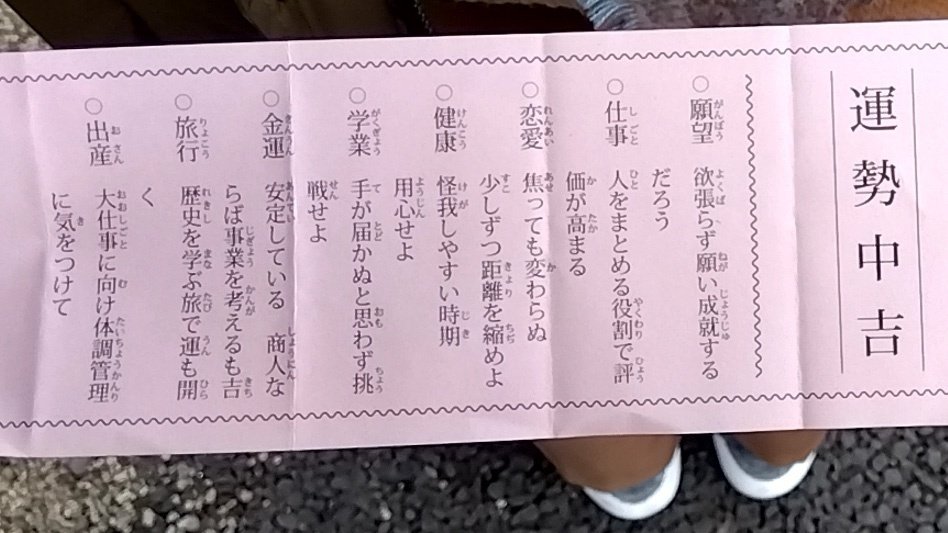 運勢中吉
○願望 欲張らず願い成就する
だろう
○仕事 人をまとめる役割で評
価が高まる
○恋愛 焦っても変わらぬ
少しずつ距離を縮めよ
○健康 怪我しやすい時期
用心せよ
○学業 手が届かぬと思わず挑
戦せよ
○金運 安定している 商人な
らば事業を考えるも吉
○旅行 歴史を学ぶ旅で運も開
く
○出産 大仕事に向け体調管理
に気をつけて